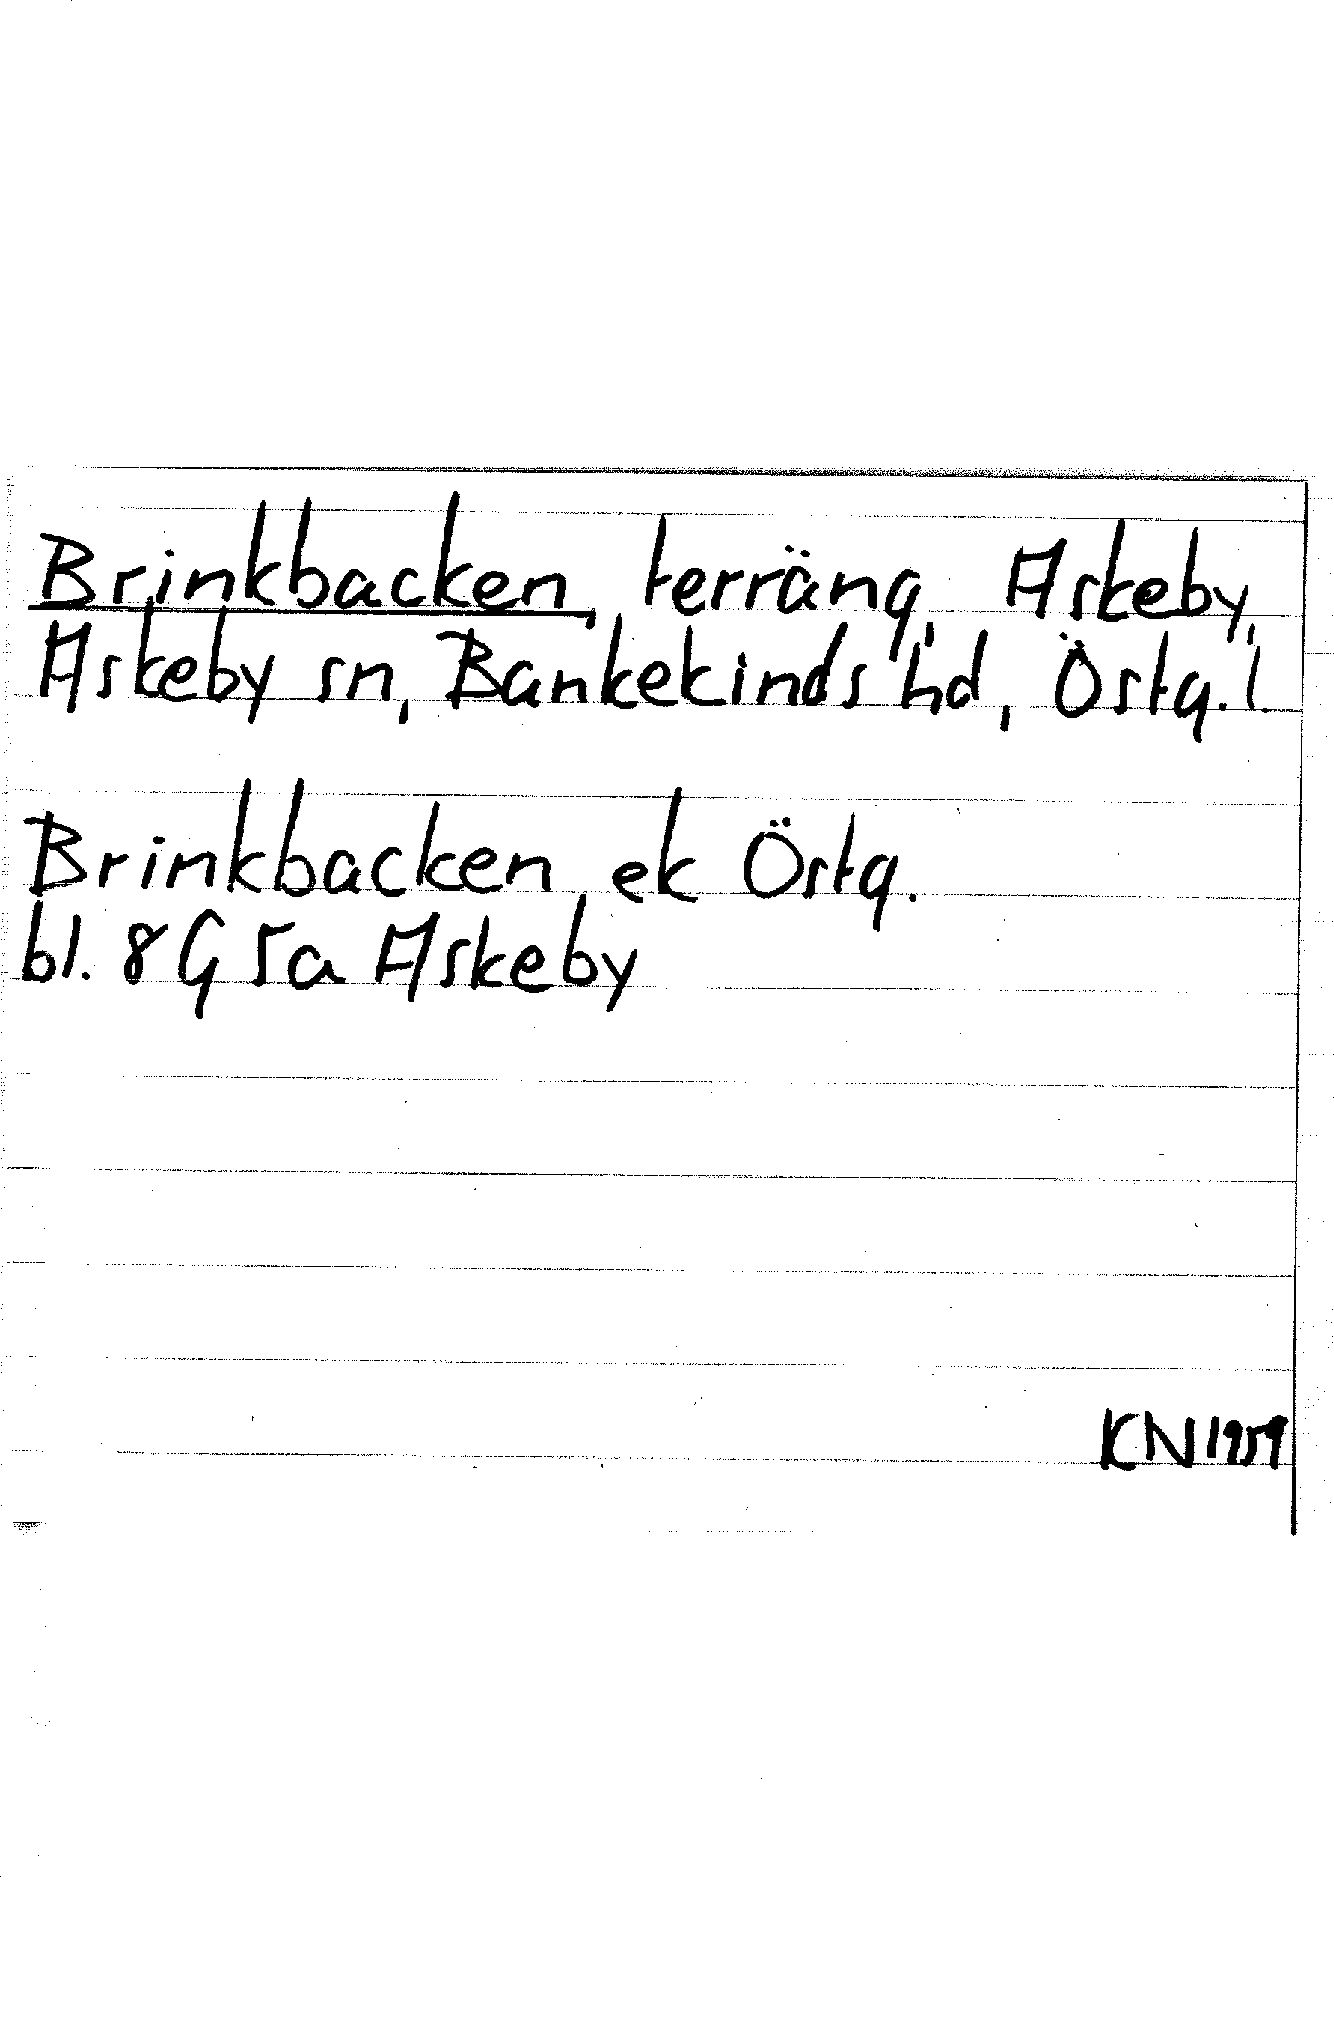 Brinkbacken, terräng, Askeby,
Askeby sn, Bankekinds hd, Östg. l.
Brinkbacken ek Östg.
bl. 8 G 5a Askeby
KN 1959